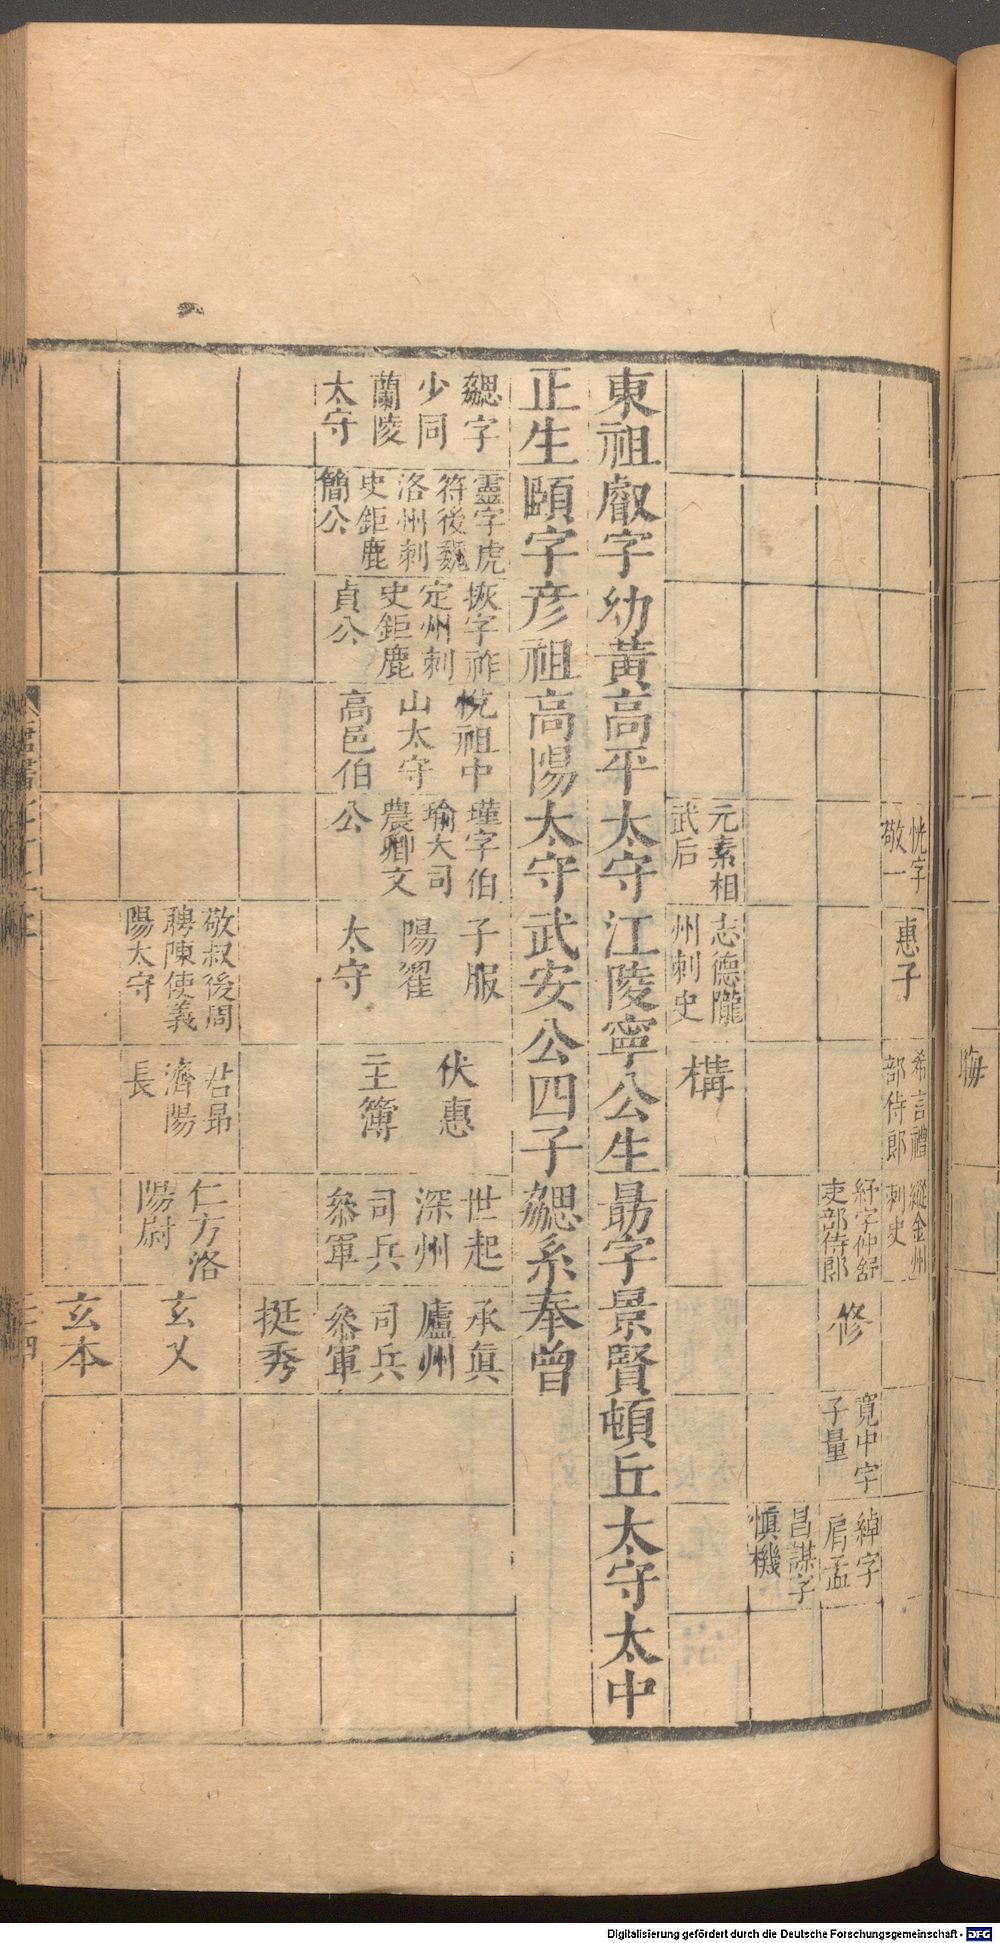 恍字敬一
惠子
希言禮部侍郎
縱金州刺史
紓字仲舒吏部侍郎
修
寬中字子量
綽字肩孟
昌謀字慎機
元素相武后
志德隴州刺史
構
東祖叡字幼黃高平太守江陵寧公生勗字景賢頓丘太守太中
正生頤字彥祖高陽太守武安公四子勰系奉曾
勰字少同蘭陵太守
靈字虎符後魏洛州刺史鉅鹿簡公
恢字祚定州刺史鉅鹿貞公
悅祖中山太守高邑伯
瑾字伯瑜大司農卿文公
子服陽翟太守
伏惠主簿
世起深州司兵叅軍
承眞廬州司兵叅軍
挺秀
敬叔後周聘陳使義陽太守
君昂濟陽長
仁方洛陽尉
玄乂
玄本
晦
Digitalisierung gefördert durch die Deutsche Forschungsgemeinschaft - DFG